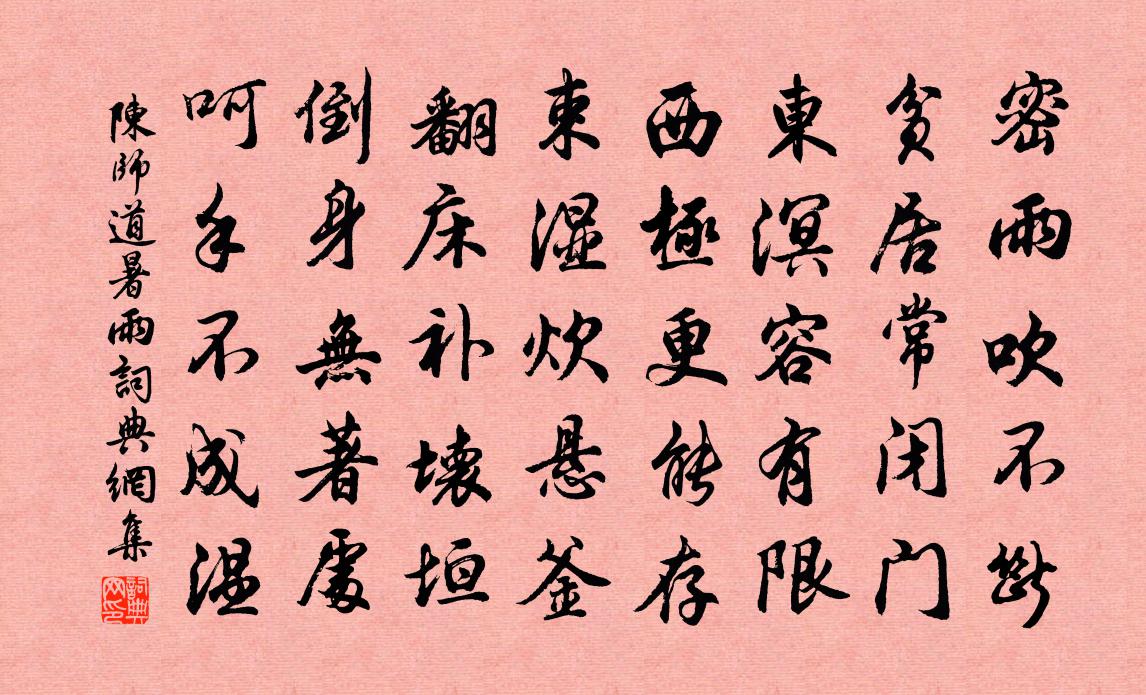 密雨吹不断
貧居常闭门
東溟容有限
西極更能存
束湿炊悬釜
翻床补壊垣
倒身無著處
呵手不成温
陳師道暑雨詞典網集
詞典网印